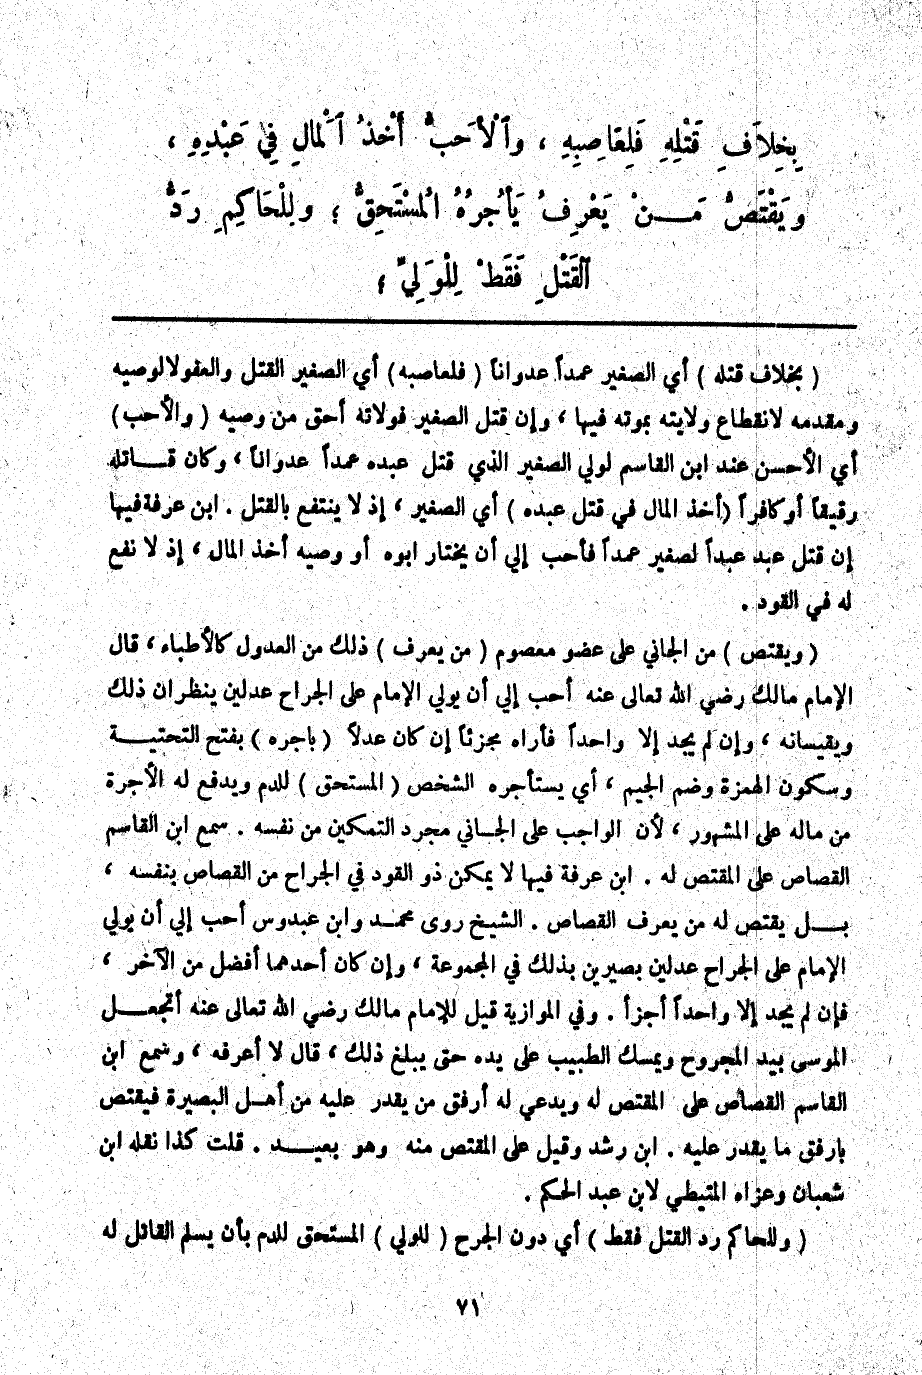 بِخِلاَفِ قَتْلِهِ فَلِعَاصِبِهِ ، وَٱلْأَحَبُّ أَخْذُ ٱلْمَالِ فِي عَبْدِهِ ،
وَيَقْتَصُّ مَـنْ يَعْرِفُ يَأْجُرُهُ الْمُسْتَحِقُّ ؛ وَلِلْحَاكِمِ رَدُّ
ٱلْقَتْلِ فَقَطْ لِلْوَلِيِّ ؛
( بخلاف قتله ) أي الصغير عمداً عدواناً ( فلعاصبه ) أي الصغير القتل والعفو لا لوصيه
ومقدمه لانقطاع ولايته بموته فيها ، وإن قتل الصغير فولاته أحق من وصيه ( والأحب)
أي الأحسن عند ابن القاسم لولي الصغير الذي قتل عبده عمداً عدواناً ، وكان قـاتله
رقيقاً أو كافراً (أخذ المال في قتل عبده ) أي الصغير ، إذ لا ينتفع بالقتل . ابن عرفة فيها
إن قتل عبد عبداً لصغير عمداً فأحب إلي أن يختار ابوه أو وصيه أخذ المال ، إذ لا نفع
له في القود .
( ويقتص ) من الجاني على عضو معصوم ( من يعرف ) ذلك من العدول كالأطباء ، قال
الإمام مالك رضي الله تعالى عنه أحب إلي أن يولي الإمام على الجراح عدلين ينظران ذلك
ويقيسانه ، وإن لم يجد إلا واحداً فأراه مجزئاً إن كان عدلاً ( ياجره ) بفتح التحتيـة
وسكون الهمزة وضم الجيم ، أي يستأجره الشخص ( المستحق ) للدم ويدفع له الأجرة
من ماله على المشهور ، لأن الواجب على الجـاني مجرد التمكين من نفسه . سمع ابن القاسم
القصاص على المقتص له . ابن عرفة فيها لا يمكن ذو القود في الجراح من القصاص بنفسه ،
بـل يقتص له من يعرف القصاص . الشيخ روى محمـد وابن عبدوس أحب إلي أن يولي
الإمام على الجراح عدلين بصيرين بذلك في المجموعة ، وإن كان أحدهما أفضل من الآخر ،
فإن لم يجد إلا واحداً أجزأ . وفي الموازية قيل للإمام مالك رضي الله تعالى عنه أتجعـل
الموسى بيد المجروح ويمسك الطبيب على يده حتى يبلغ ذلك ، قال لا أعرفه ، وسمع ابن
القاسم القصاص على المقتص له ويدعي له أرفق من يقدر عليه من أهـل البصيرة فيقتص
بارفق ما يقدر عليه . ابن رشد وقيل على المقتص منه وهو بعيـد . قلت كذا نقله ابن
شعبان وعزاه المتيطي لابن عبد الحكم .
( وللحاكم رد القتل فقط ) أي دون الجرح ( للولي ) المستحق للدم بأن يسلم القاتل له
٧١